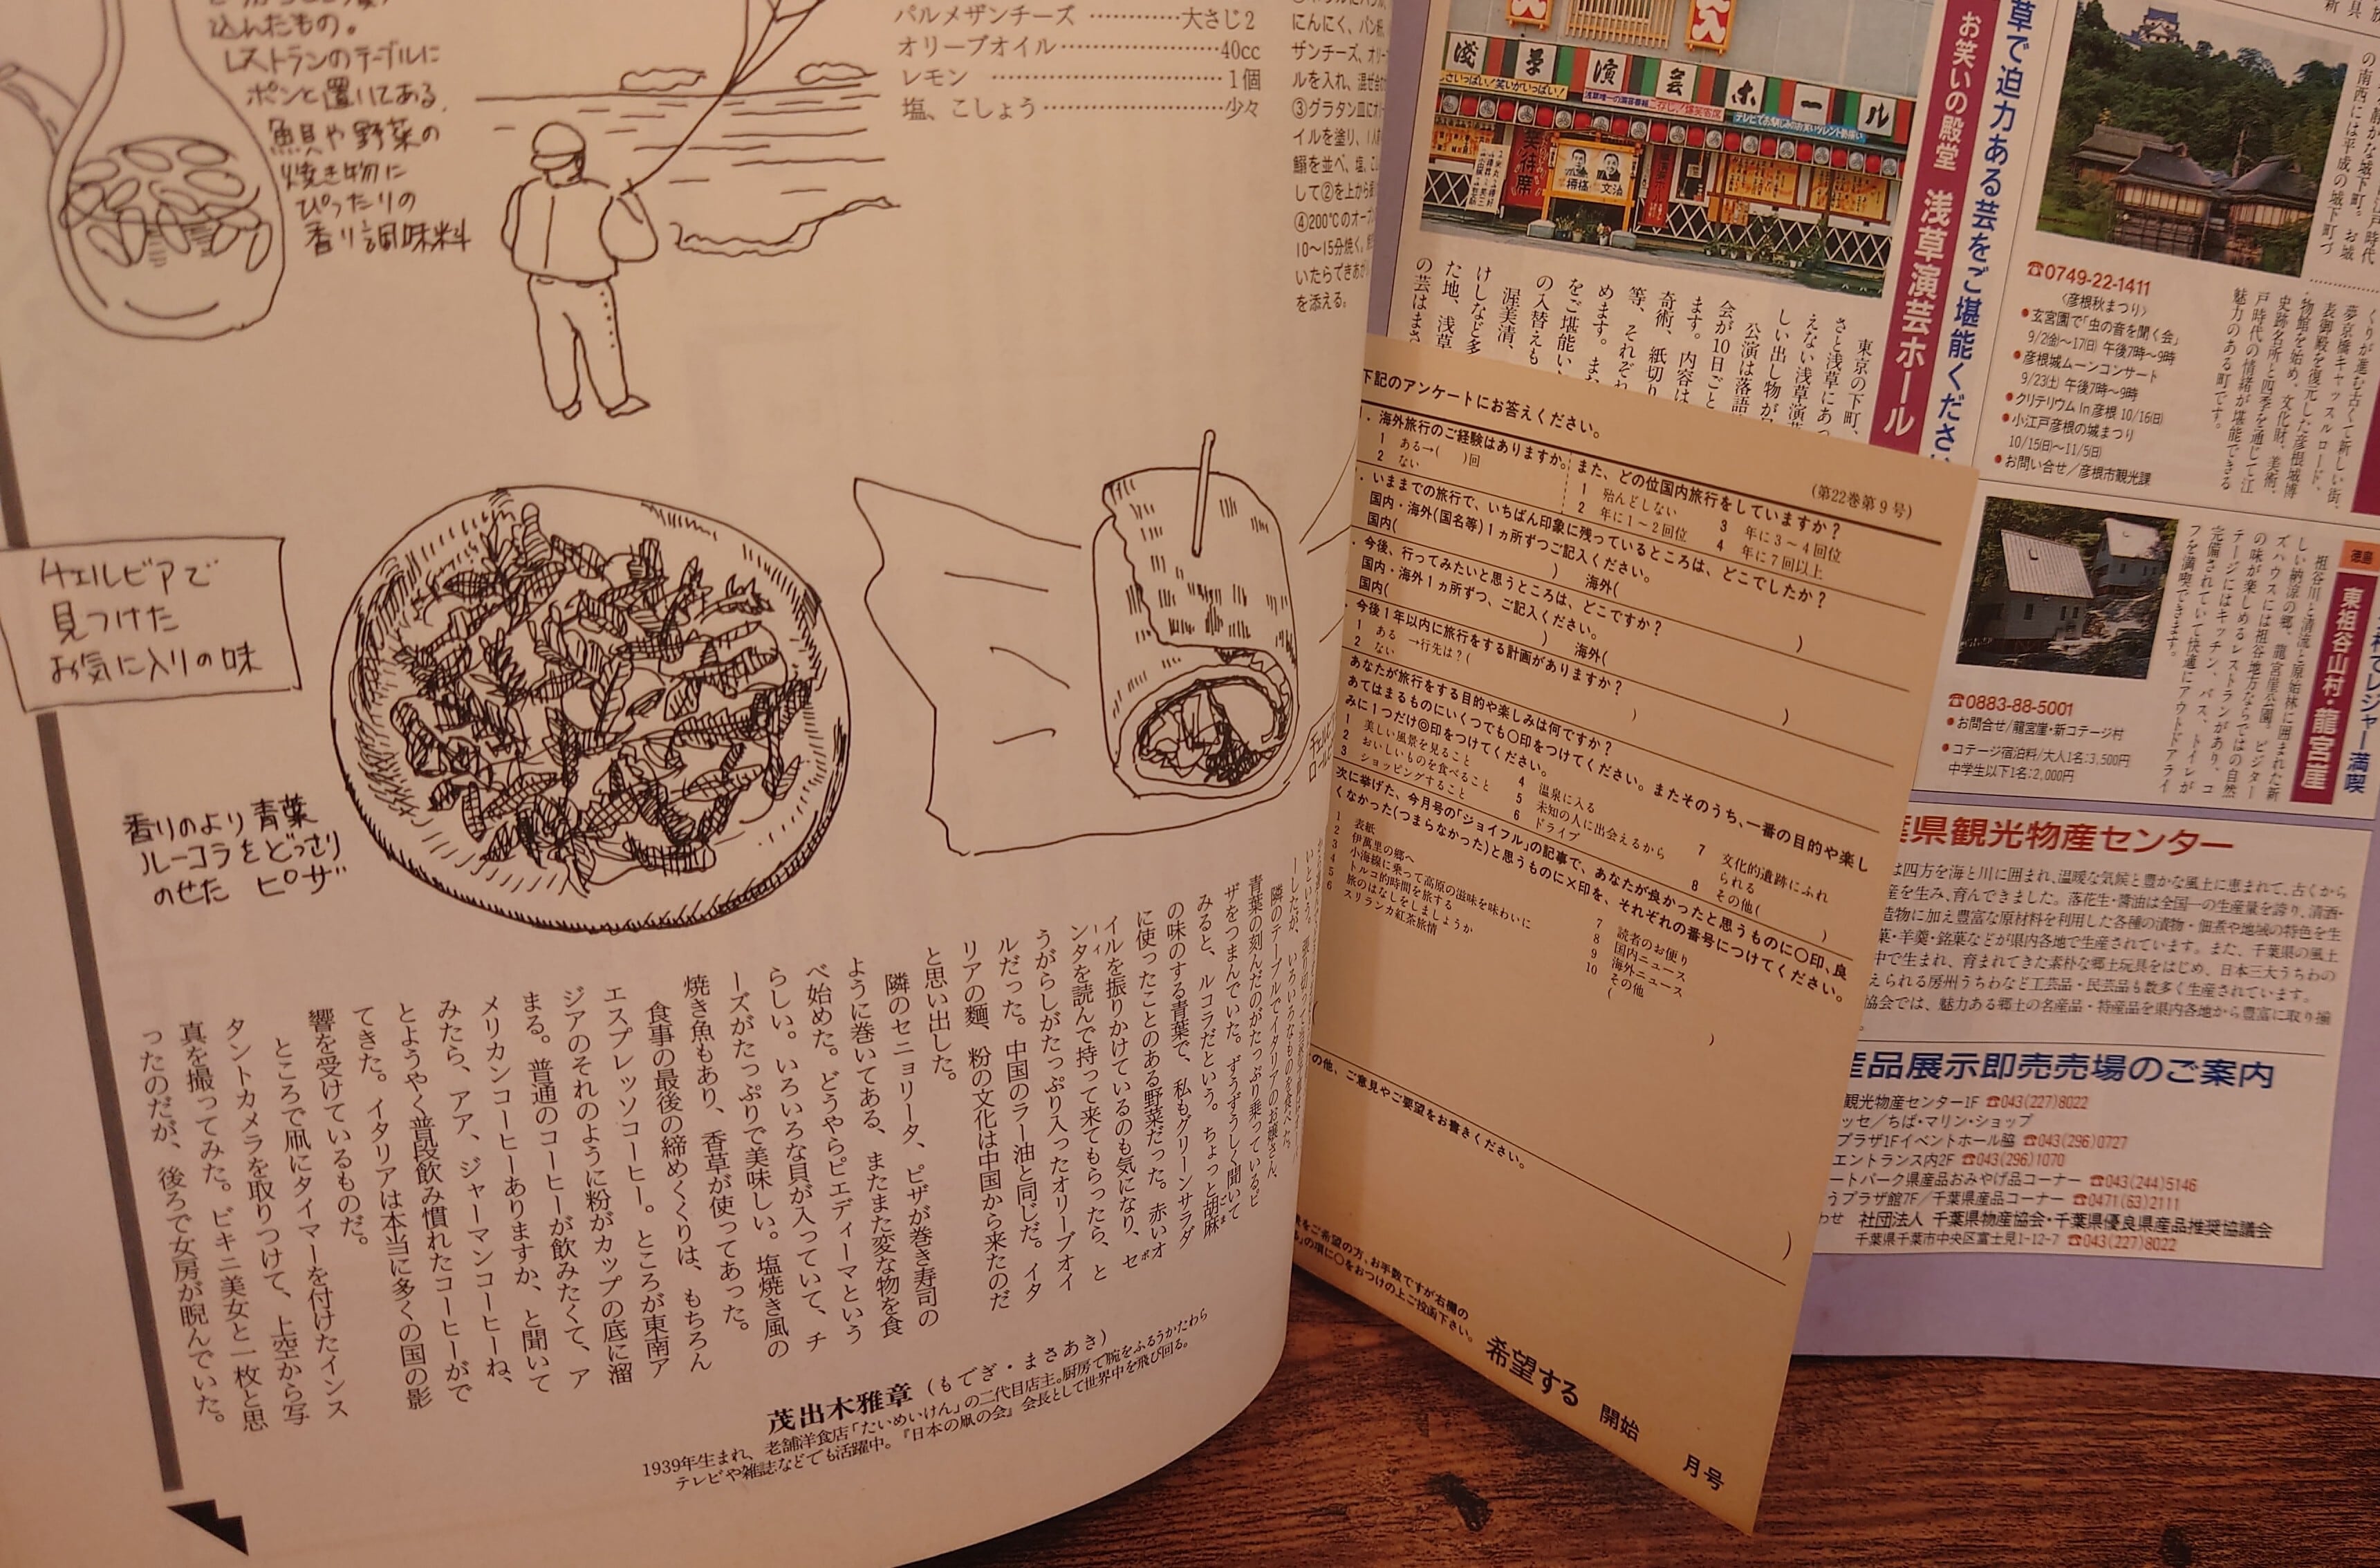 込んたもの。
レストランのテーブルに
ポンと置いてある
魚貝や野菜の
焼き物に
ぴったりの
香り調味料
パルメザンチーズ …………大さじ2
オリーブオイル…………………40cc
レモン …………………………1個
塩、こしょう……………………少々
にんにく、パン粉、
ザンチーズ、オリー
ルを入れ、混ぜ合わ
③グラタン皿にオー
イルを塗り、
して②を上から
④200℃のオーブ
10〜15分焼く。
いたらできあが
を添える。
チェルビアで
見つけた
お気に入りの味
香りのより青葉
ルーコラをどっさり
のせた ピザ
隣のテーブルでイタリアのお嬢さん、
青葉の刻んだのがたっぷり乗っているピ
ザをつまんでいた。ずうずうしく聞いて
みると、ルコラだという。ちょっと胡麻
の味のする青葉で、私もグリーンサラダ
に使ったことのある野菜だった。赤いオ
イルを振りかけているのも気になり、セ
ンタを読んで持って来てもらったら、と
うがらしがたっぷり入ったオリーブオイ
ルだった。中国のラー油と同じだ。イタ
リアの麺、粉の文化は中国から来たのだ
と思い出した。
隣のセニョリータ、ピザが巻き寿司の
ように巻いてある、またまた変な物を食
べ始めた。どうやらピエディーマという
らしい。いろいろな貝が入っていて、チ
ーズがたっぷりで美味しい。塩焼き風の
焼き魚もあり、香草が使ってあった。
食事の最後の締めくくりは、もちろん
エスプレッソコーヒー。ところが東南ア
ジアのそれのように粉がカップの底に溜
まる。普通のコーヒーが飲みたくて、ア
メリカンコーヒーありますか、と聞いて
みたら、アア、ジャーマンコーヒーね、
とようやく普段飲み慣れたコーヒーがで
てきた。イタリアは本当に多くの国の影
響を受けているものだ。
ところで凧にタイマーを付けたインス
タントカメラを取りつけて、上空から写
真を撮ってみた。ビキニ美女と一枚と思
ったのだが、後ろで女房が睨んでいた。
茂出木雅章(もでぎ・まさあき)
1939年生まれ、老舗洋食店「たいめいけん」の二代目店主。厨房で腕をふるうかたわら
テレビや雑誌などでも活躍中。『日本の凧の会』会長として世界中を飛び回る。
下記のアンケートにお答えください。
(第22巻第9号)
海外旅行のご経験はありますか。
1 ある→( )回
2 ない
また、どの位国内旅行をしていますか?
1 殆んどしない
2 年に1〜2回位
3 年に3〜4回位
4 年に7回以上
いままでの旅行で、いちばん印象に残っているところは、どこでしたか?
国内・海外(国名等)1ヵ所ずつご記入ください。
国内( ) 海外( )
今後、行ってみたいと思うところは、どこですか?
国内・海外1ヵ所ずつ、ご記入ください。
国内( ) 海外( )
今後1年以内に旅行をする計画がありますか?
1 ある →行先は?( )
2 ない
あなたが旅行をする目的や楽しみは何ですか?
あてはまるものにいくつでも○印をつけてください。またそのうち、一番の目的や楽し
みに1つだけ◎印をつけてください。
1 美しい風景を見ること
2 おいしいものを食べること
3 ショッピングすること
4 温泉に入る
5 未知の人に出会えるから
6 ドライブ
7 文化的遺跡にふれ
られる
8 その他( )
次に挙げた、今月号の「ジョイフル」の記事で、あなたが良かったと思うものに○印、良
くなかった(つまらなかった)と思うものに×印を、それぞれの番号につけてください。
1 表紙
2 伊萬里の郷へ
3 小海線に乗って高原の滋味を味わいに
4 トルコ的時間を旅する
5 旅のはなしをしましょうか
6 スリランカ紅茶旅情
7 読者のお便り
8 国内ニュース
9 海外ニュース
10 その他
( )
の他、ご意見やご要望をお書きください。
をご希望の方、お手数ですが右欄の
の項に○をおつけの上ご投函下さい。
希望する 開始 月号
浅草演芸ホール
草で迫力ある芸をご堪能くださ
お笑いの殿堂 浅草演芸ホール
東京の下町、
さと浅草にあっ
えない浅草演芸
しい出し物が
公演は落語
会が10日ごと
ます。内容は
奇術、紙切り
等、それぞれ
めます。また
をご堪能い
の入替えも
渥美清、
けしなど多
た地、浅草
の芸はまさ
☎0749-22-1411
〈彦根秋まつり〉
●玄宮園で「虫の音を聞く会」
9/2(金)〜17(日) 午後7時〜9時
●彦根城ムーンコンサート
9/23(土) 午後7時〜9時
●クリテリウム in 彦根 10/16(日)
●小江戸彦根の城まつり
10/15(日)〜11/5(日)
●お問い合せ/彦根市観光課
くりが進む古くて新しい街、
夢京橋キャッスルロード、
表御殿を復元した彦根城博
物館を始め、文化財、美術、
史跡名所と四季を通じて江
戸時代の情緒が堪能できる
魅力のある町です。
徳島
東祖谷山村・龍宮崖
でレジャー満喫
祖谷川と清流と原始林に囲まれた新
しい納涼の郷、龍宮崖公園。ビジター
ズハウスには祖谷地方ならではの自然
の味が楽しめるレストランがあり、コ
テージにはキッチン、バス、トイレが
完備されていて快適にアウトドアライ
フを満喫できます。
☎0883-88-5001
●お問合せ/龍宮崖・新コテージ村
●コテージ宿泊料/大人1名:3,500円
中学生以下1名:2,000円
葉県観光物産センター
は四方を海と川に囲まれ、温暖な気候と豊かな風土に恵まれて、古くから
産を生み、育んできました。落花生・醤油は全国一の生産量を誇り、清酒・
造物に加え豊富な原材料を利用した各種の漬物・佃煮や地域の特色を生
菓・羊羹・銘菓などが県内各地で生産されています。また、千葉県の風土
中で生まれ、育まれてきた素朴な郷土玩具をはじめ、日本三大うちわの
えられる房州うちわなど工芸品・民芸品も数多く生産されています。
協会では、魅力ある郷土の名産品・特産品を県内各地から豊富に取り揃
産品展示即売売場のご案内
観光物産センター1F ☎043(227)8022
ッセ/ちば・マリン・ショップ
プラザ1Fイベントホール脇 ☎043(296)0727
エントランス内2F ☎043(296)1070
ートパーク県産品おみやげ品コーナー ☎043(244)5146
うプラザ館7F/千葉県産品コーナー ☎0471(63)2111
わせ 社団法人 千葉県物産協会・千葉県優良県産品推奨協議会
千葉県千葉市中央区富士見1-12-7 ☎043(227)8022